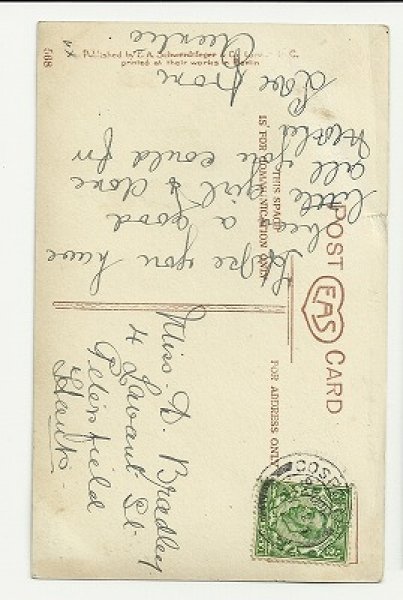 POST EAS CARD
THIS SPACE
IS FOR COMMUNICATION ONLY
FOR ADDRESS ONLY
Hope you have
been a good
little girl & done
all you could for
Love from
Miss D. Bradley
4 Lavant St
Petersfield
Hants
Published by E. A. Schwerdtfeger & Co.
printed at their works in Berlin